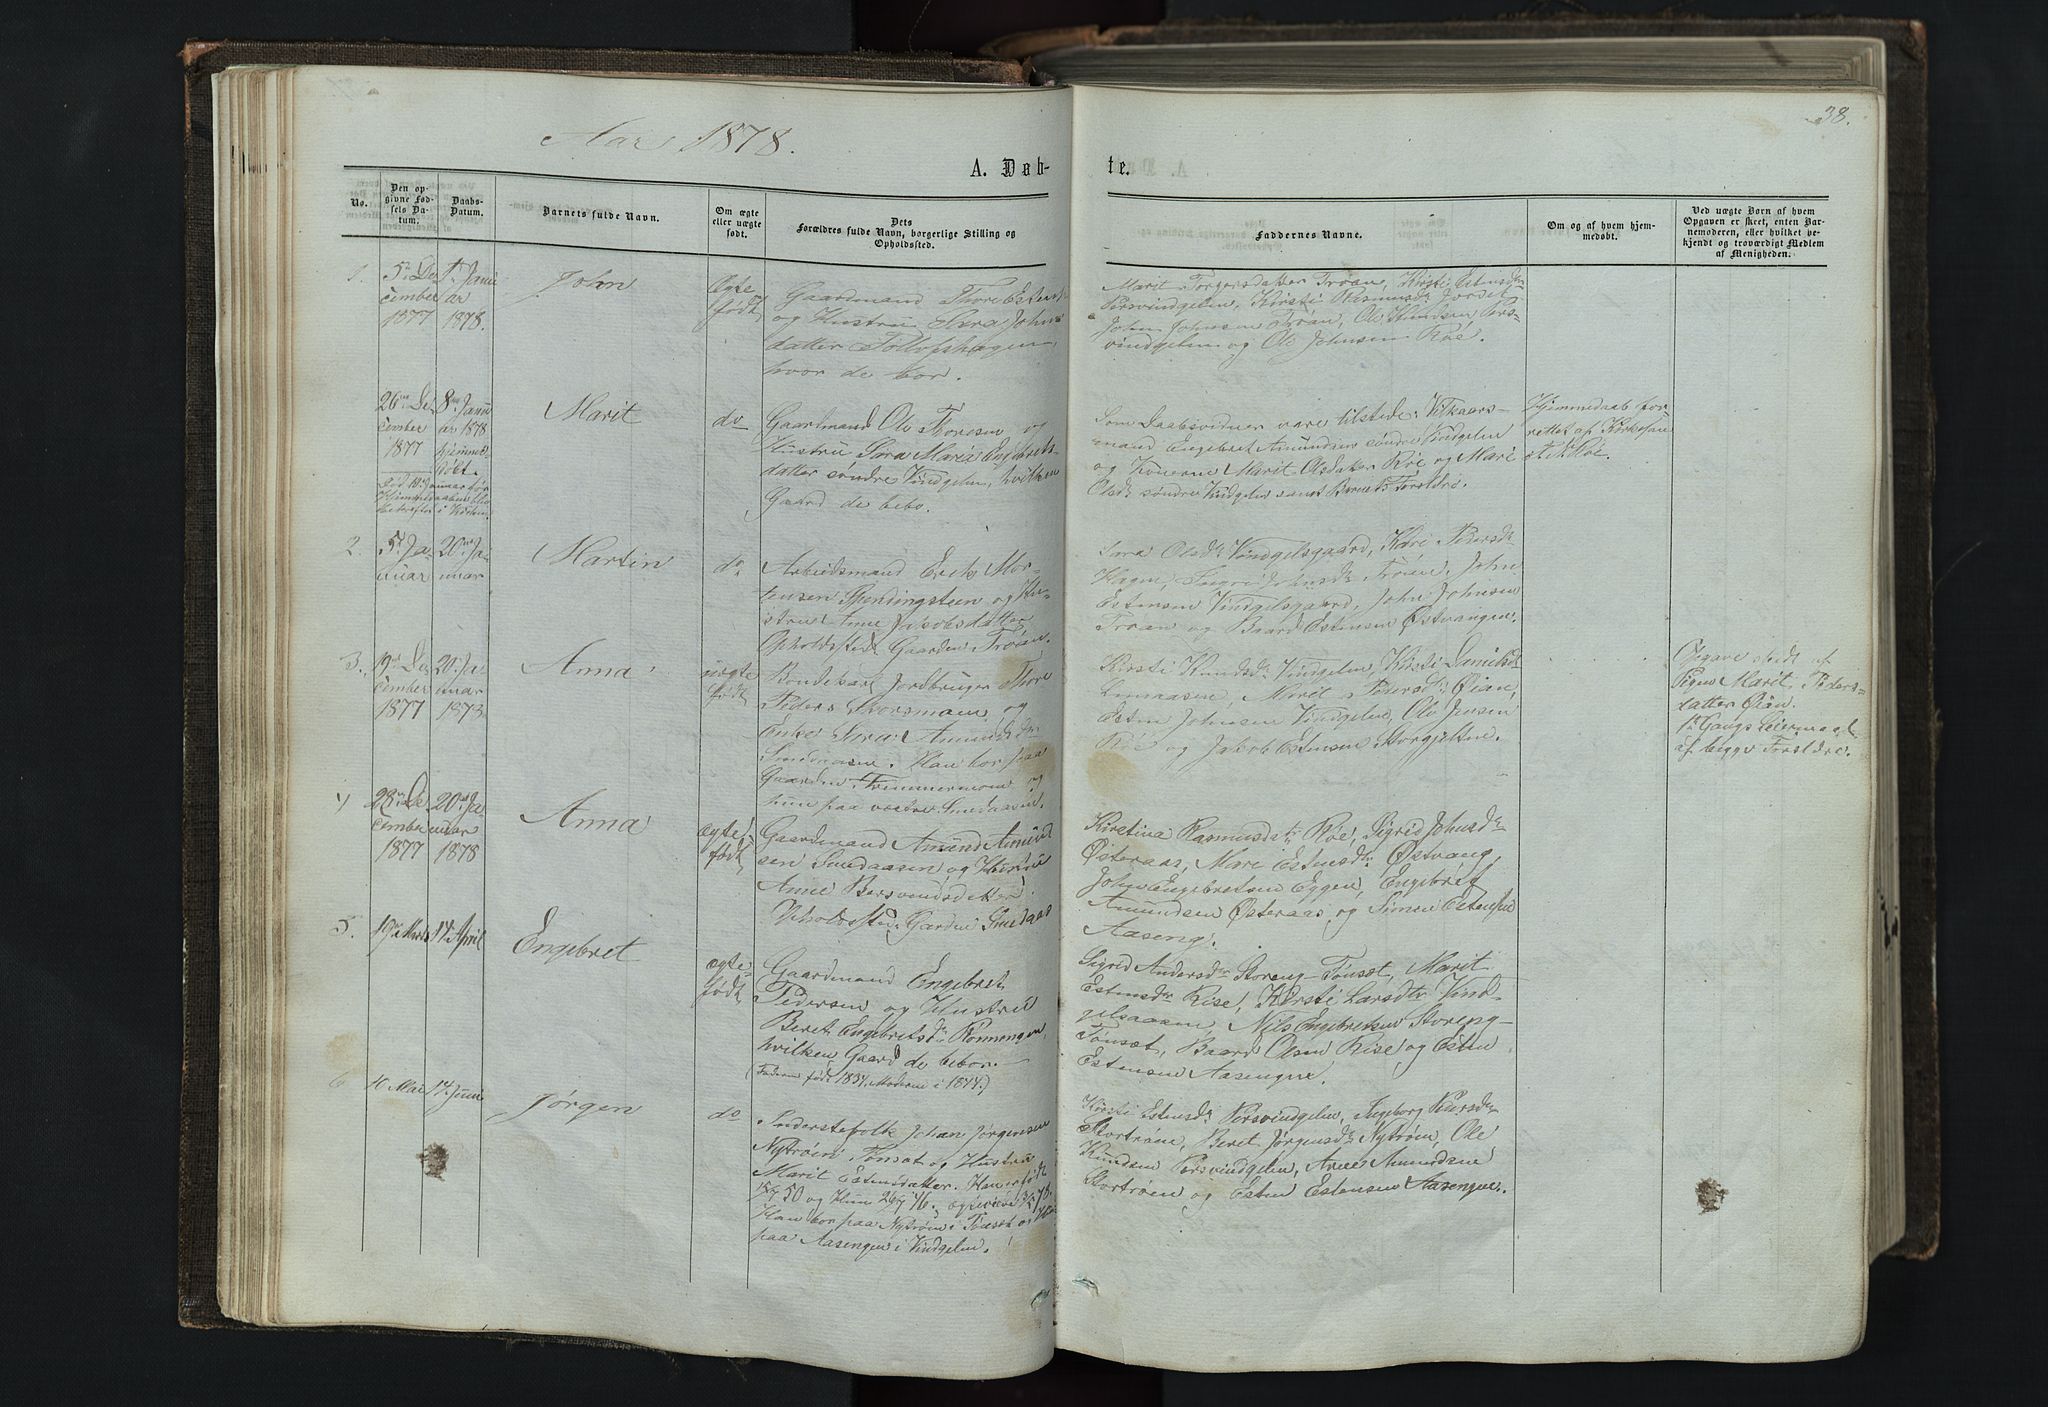 38.
Aar 1878.
A. Døb-
te.
No.
Den op-
givne Fød-
sels Da-
tum.
Daabs-
Datum.
Barnets fulde Navn.
Om ægte
eller uægte
født.
Dets
Forældres fulde Navn, borgerlige Stilling og
Opholdssted.
Faddernes Navne.
Om og af hvem hjem-
medøbt.
Ved uægte Børn af hvem
Opgaven er skeet, enten Bar-
nemoderen, eller hvilket be-
kjendt og troværdigt Medlem
af Menigheden.
1.
5te De
cember
1877
1te Janu
ar
1878.
John
Ægte
født
Gaardmand Thore Estens.
og Hustru Sara Johns
datter Tollofshagen,
hvor de bor.
Marit Torgersdatter Trøan, Kirsti Estensdr
Persvindgelen, Kirsti Rasmusdr Jordet
John Johnsen Trøan, Ole Knudsen Pers-
vindgelen og Ole Johnsen Røe.
26de De
cember
1877
8de Janu
ar 1878
hjemme
døbt.
Marit
do
Gaardmand Ole Thoresen og
Hustru Sara Maria Engebrets-
datter søndre Vindgelen, hvilken
Gaard de bebo.
Som Daabsvidner vare tilstede: Vilkaars-
mand Engebret Amundsen søndre Vindgelen,
og Konerne Marit Olsdatter Røe og Mari
Olsdr søndre Vindgelen samt Barnets Forældre.
Hjemmedaab for-
rettet af Kirkesan
Røe.
2.
5te Ja-
nuar
20de Ja-
nuar
Martin
do.
Arbeidsmand Erik Mor-
tensen Spendingsteen og Hu-
stru Anne Jakobsdatter
Opholdssted: Gaarden Trøan.
Sara Olsdr Vindgelsgaard, Kari Pedersdr
Hagen, Sigrid Johnsdr Trøan, John
Estensen Vindgelsgaard, John Johnsen
Trøan og Baard Estensen Østvangen.
3.
19de De
cember
1877
20de Ja
nuar
1878
Anna
uægte
født
Bondekarl Jordbruger Thore
Peders. Morsmoen og
Enke Sara Amundsdr
Smedaasen. Han bor paa
Gaarden Trimmermoen og
hun paa vestre Smedaasen.
Kirsti Knudsdr Vindgelen, Kirsti Danielsdr
Lennaasen, Marit Pedersdr Øian,
Esten Johnsen Vindgelen, Ole Jensen
Røe og Jakob Estensen Storgjelten.
Opgave skedt af
Pigen Marit Peders-
datter Øian.
1te Gangs Leiermaal
af begge Forældre.
4
28de De
cember
1877
20de Ja
nuar
1878
Anna
ægte
født
Gaardmand Amund Amund
sen Smedaasen og Hustru
Anne Bersvendsdatter.
Opholdssted: Gaarden Smedaas
Kirstina Rasmusdtr Røe, Sigrid Johnsdr
Østeraas, Mari Estensdr Østvang,
John Engebretsen Eggen, Engebret
Amundsen Østeraas og Simen Estensen
Aaseng.
5.
19de Marts
14 April
Engebret
ægte-
født
Gaardmand Engebret
Pedersen og Hustru
Beret Engebretsdr Rønningen,
hvilken Gaard de bebor.
(Faderen født 1834, Moderen i 1844.)
Sigrid Andersdr Storeng Tønset, Marit
Estensdr Rise, Kirsti Larsdtr Vind-
gelsaasen, Nils Engebretsen Storeng-
Tønset, Baard Olsen Rise og Esten
Estensen Aasengen.
6
10 Mai
14 Juni
Jørgen
do
Inderstefolk Johan Jørgensen
Nytrøen, Tønset og Hustru
Marit Estensdatter. Han er født
50 og Hun 26/7 46.
Han bor paa Nytrøen i Tønset og Hun
paa Aasengen i Vindgelen.
Kirsti Estensdr Persvindgelen, Ingeborg Pedersdr
Stortrøen, Beret Jørgensdr Nytrøen, Ole
Knudsen Persvindgelen, Arne Amundsen
Stortrøen og Esten Estensen Aasengen.